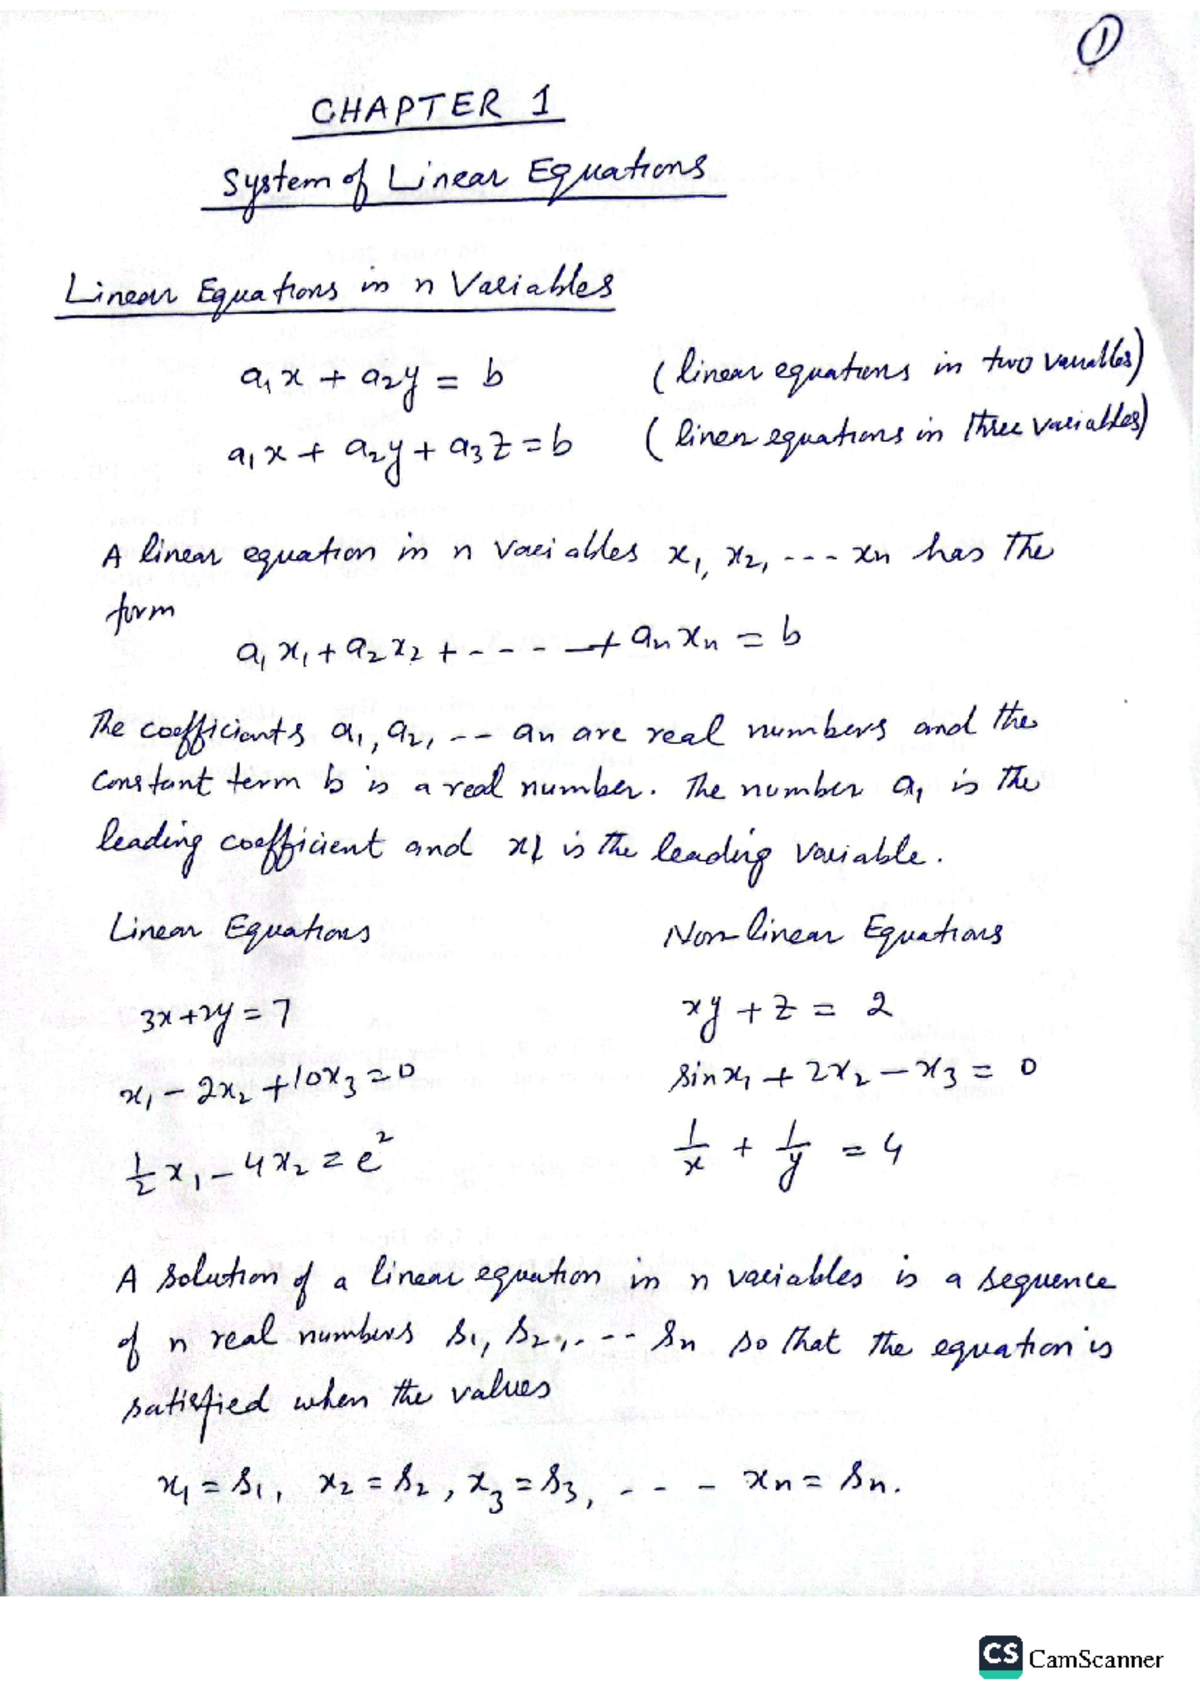 1
CHAPTER 1
System of Linear Equations
Linear Equations in n Variables
a₁x + a₂y = b (linear equations in two variables)
a₁x + a₂y + a₃z = b (linen equations in three variables)
A linear equation in n variables x₁, x₂, --- xn has the
form
a₁x₁ + a₂x₂ + - - - - + anxn = b
The coefficients a₁, a₂, -- an are real numbers and the
constant term b is a real number. The number a₁ is the
leading coefficient and x₁ is the leading variable.
Linear Equations Non-linear Equations
3x+2y = 7 xy + z = 2
x₁ - 2x₂ + 10x₃ = 0 sinx₁ + 2x₂ - x₃ = 0
1/2 x₁ - 4x₂ = e² 1/x + 1/y = 4
A solution of a linear equation in n variables is a sequence
of n real numbers s₁, s₂, --- sn so that the equation is
satisfied when the values
x₁ = s₁, x₂ = s₂, x₃ = s₃, - - - xn = sn.
CS CamScanner